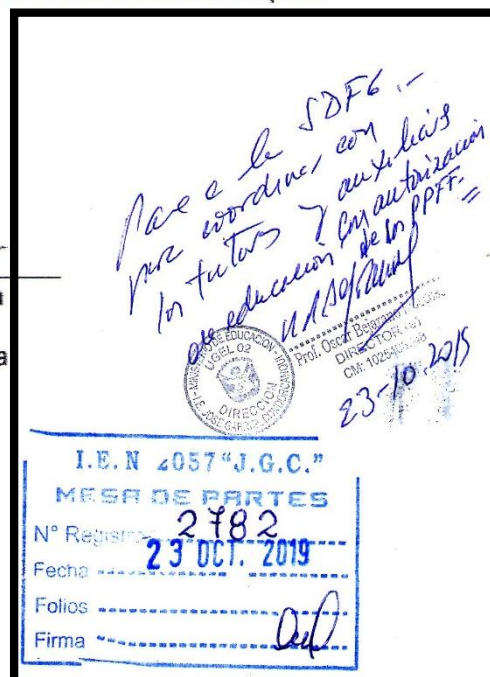 Pase a la SDFG.-
para coordinar con
los tutores y auxiliares
de educación con autorización
de los PPFF.=
MINISTERIO DE EDUCACIÓN
UGEL 02
DIRECCION
I.E. JOSE GARCIA
Prof. Oscar Bejarano
DIRECTOR
CM: 1025
23-10-2019
I.E.N 2057 "J.G.C."
MESA DE PARTES
N° Registro 2782
Fecha 23 OCT. 2019
Folios
Firma
a
a